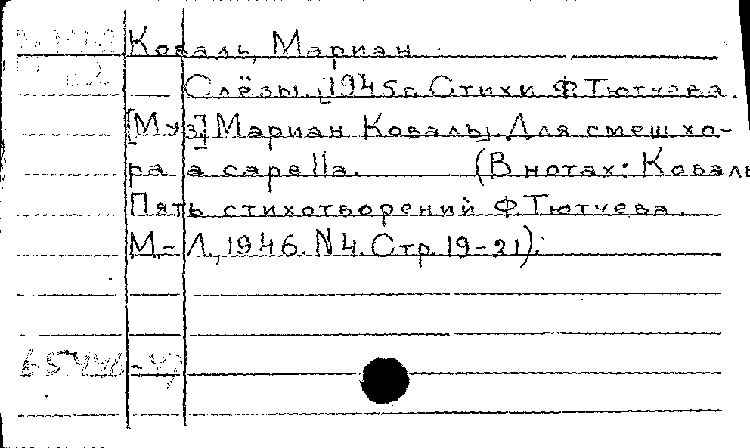 Коваль, Мариан
Слёзы. [1945г. Стихи Ф. Тютчева.
[Муз] Мариан Коваль]. Для смеш. хо-
ра a capella. (В нотах: Коваль
Пять стихотворений Ф. Тютчева.
М.-Л., 1946. N4. Стр. 19-21).